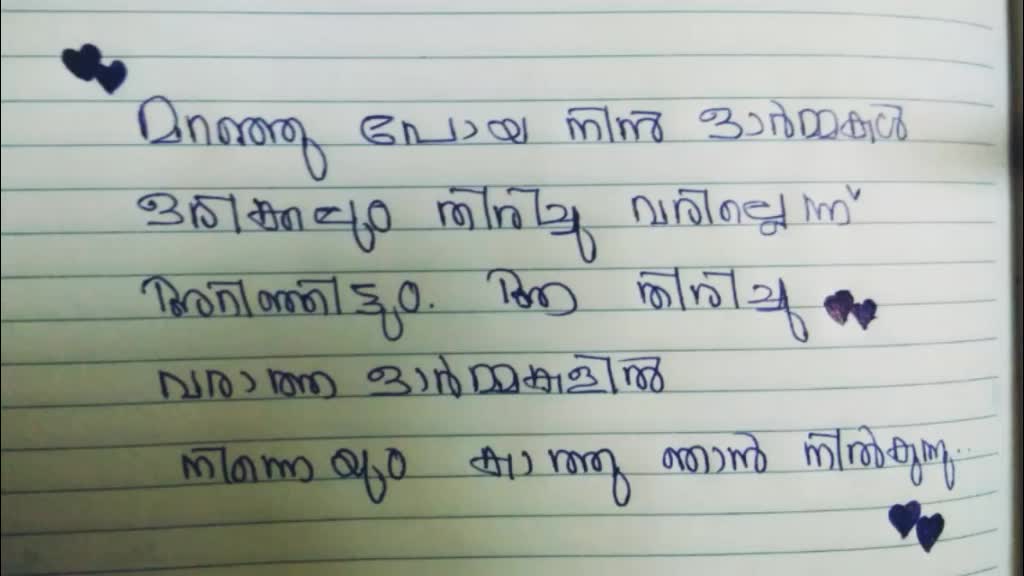 മറഞ്ഞു പോയ നിൻ ഓർമ്മകൾ
ഒരിക്കലും തിരിച്ചു വരില്ലെന്ന്
അറിഞ്ഞിട്ടും. ആ തിരിച്ചു
വരാത്ത ഓർമ്മകളിൽ
നിന്നെയും കാത്തു ഞാൻ നിൽകുന്നു..